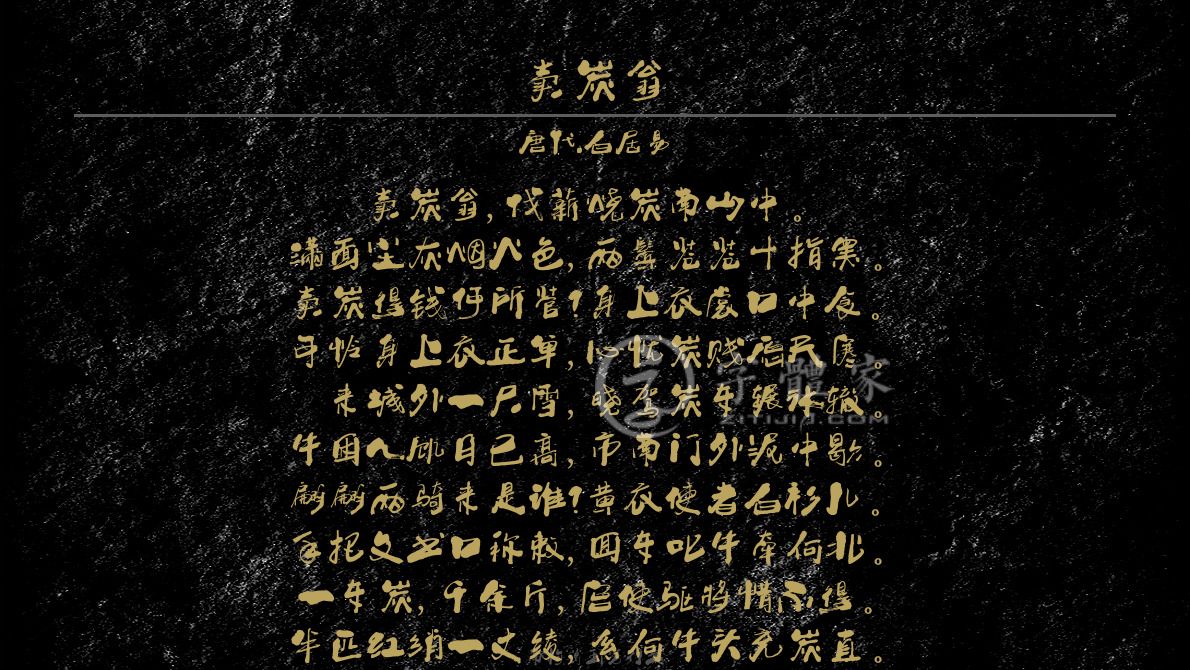 卖炭翁
唐代.白居易
卖炭翁，伐薪烧炭南山中。
满面尘灰烟火色，两鬓苍苍十指黑。
卖炭得钱何所营？身上衣裳口中食。
可怜身上衣正单，心忧炭贱愿天寒。
来城外一尺雪，晓驾炭车辗冰辙。
牛困人饥日已高，市南门外泥中歇。
翩翩两骑来是谁？黄衣使者白衫儿。
手把文书口称敕，回车叱牛牵向北。
一车炭，千余斤，宫使驱将惜不得。
半匹红绡一丈绫，系向牛头充炭直。
字體家
ZITIJIA.COM